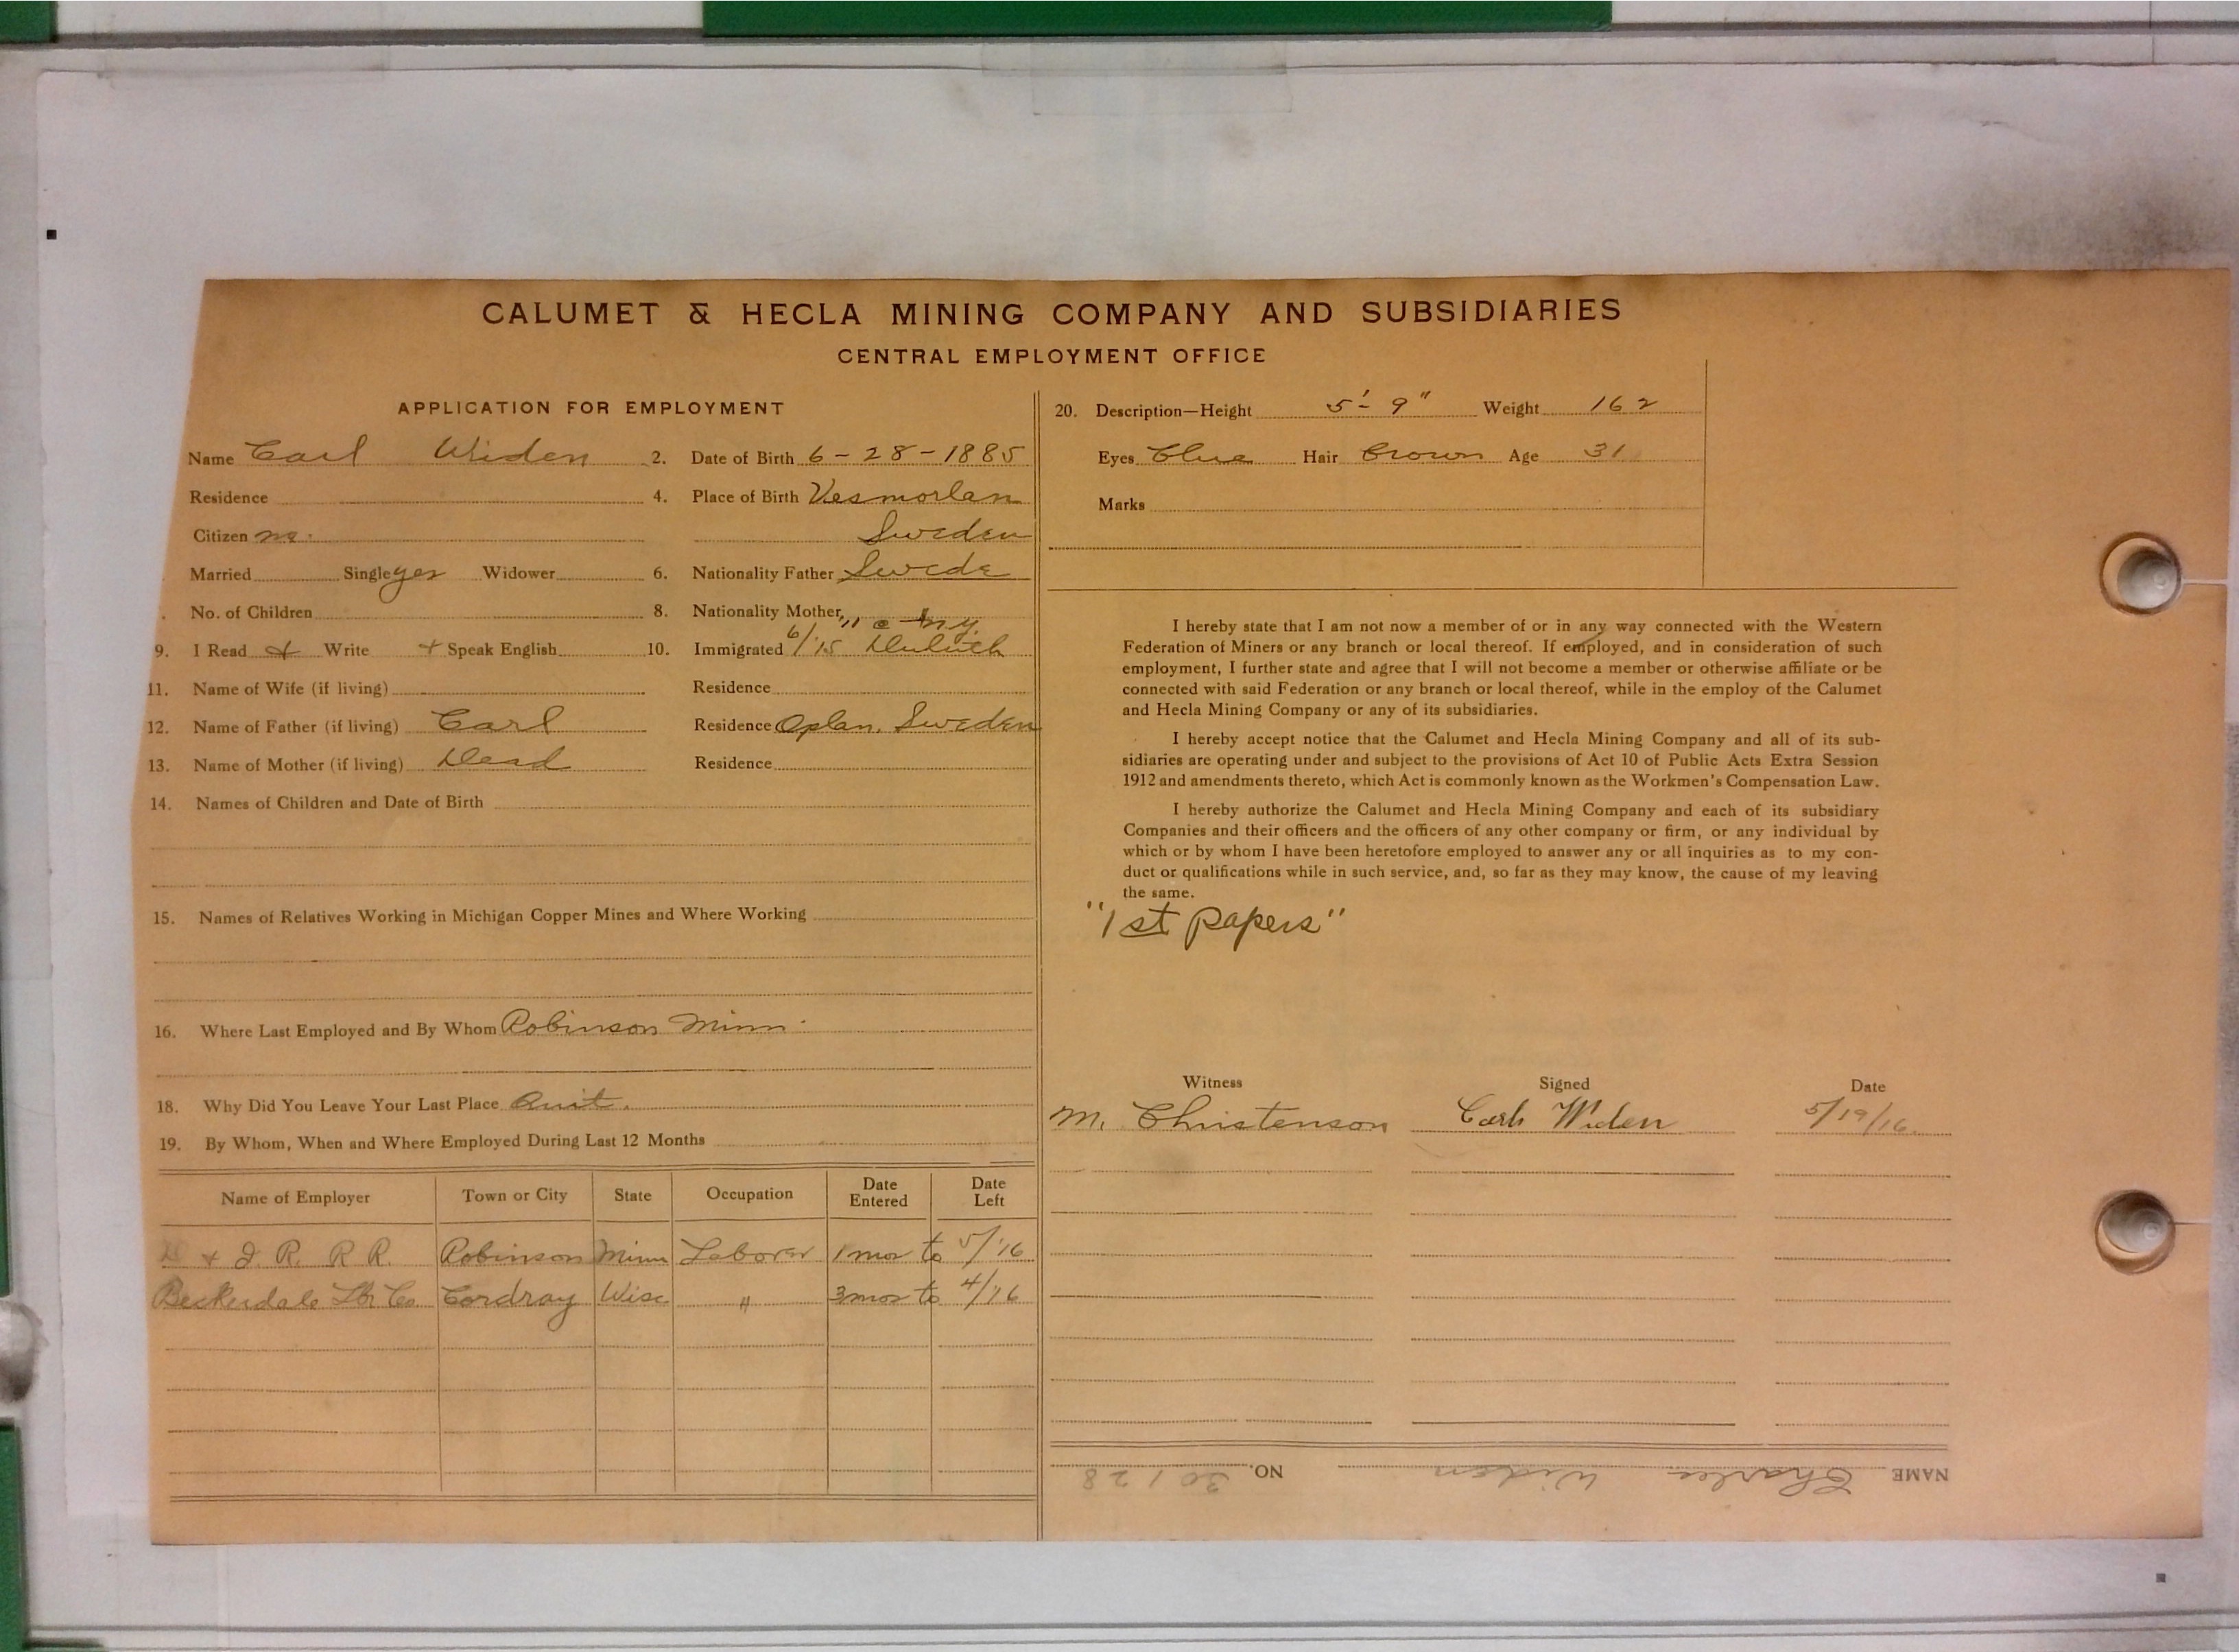 CALUMET & HECLA MINING COMPANY AND SUBSIDIARIES
CENTRAL EMPLOYMENT OFFICE
APPLICATION FOR EMPLOYMENT
Name Carl Widen 2. Date of Birth 6-28-1885
Residence 4. Place of Birth Vesmorlan
Citizen no. Sweden
Married Single yes Widower 6. Nationality Father Swede
No. of Children 8. Nationality Mother "
9. I Read + Write + Speak English 10. Immigrated 6/'15 Duluth
11. Name of Wife (if living) Residence
12. Name of Father (if living) Carl Residence Oplan, Sweden
13. Name of Mother (if living) Dead Residence
14. Names of Children and Date of Birth
15. Names of Relatives Working in Michigan Copper Mines and Where Working
16. Where Last Employed and By Whom Robinson Minn.
18. Why Did You Leave Your Last Place Quit.
19. By Whom, When and Where Employed During Last 12 Months
Name of Employer Town or City State Occupation Date Entered Date Left
D & I. R. R R. Robinson Minn Laborer 1 mos to 5/'16
Lbr Co. Cordray Wisc " 3 mos to 4/'16
20. Description—Height 5'-9" Weight 162
Eyes Blue Hair Brown Age 31
Marks
I hereby state that I am not now a member of or in any way connected with the Western
Federation of Miners or any branch or local thereof. If employed, and in consideration of such
employment, I further state and agree that I will not become a member or otherwise affiliate or be
connected with said Federation or any branch or local thereof, while in the employ of the Calumet
and Hecla Mining Company or any of its subsidiaries.
I hereby accept notice that the Calumet and Hecla Mining Company and all of its sub-
sidiaries are operating under and subject to the provisions of Act 10 of Public Acts Extra Session
1912 and amendments thereto, which Act is commonly known as the Workmen's Compensation Law.
I hereby authorize the Calumet and Hecla Mining Company and each of its subsidiary
Companies and their officers and the officers of any other company or firm, or any individual by
which or by whom I have been heretofore employed to answer any or all inquiries as to my con-
duct or qualifications while in such service, and, so far as they may know, the cause of my leaving
the same.
"1st papers"
Witness Signed Date
M. Christenson Carl Widen 5/19/16
NAME Charles Widen NO. 30128